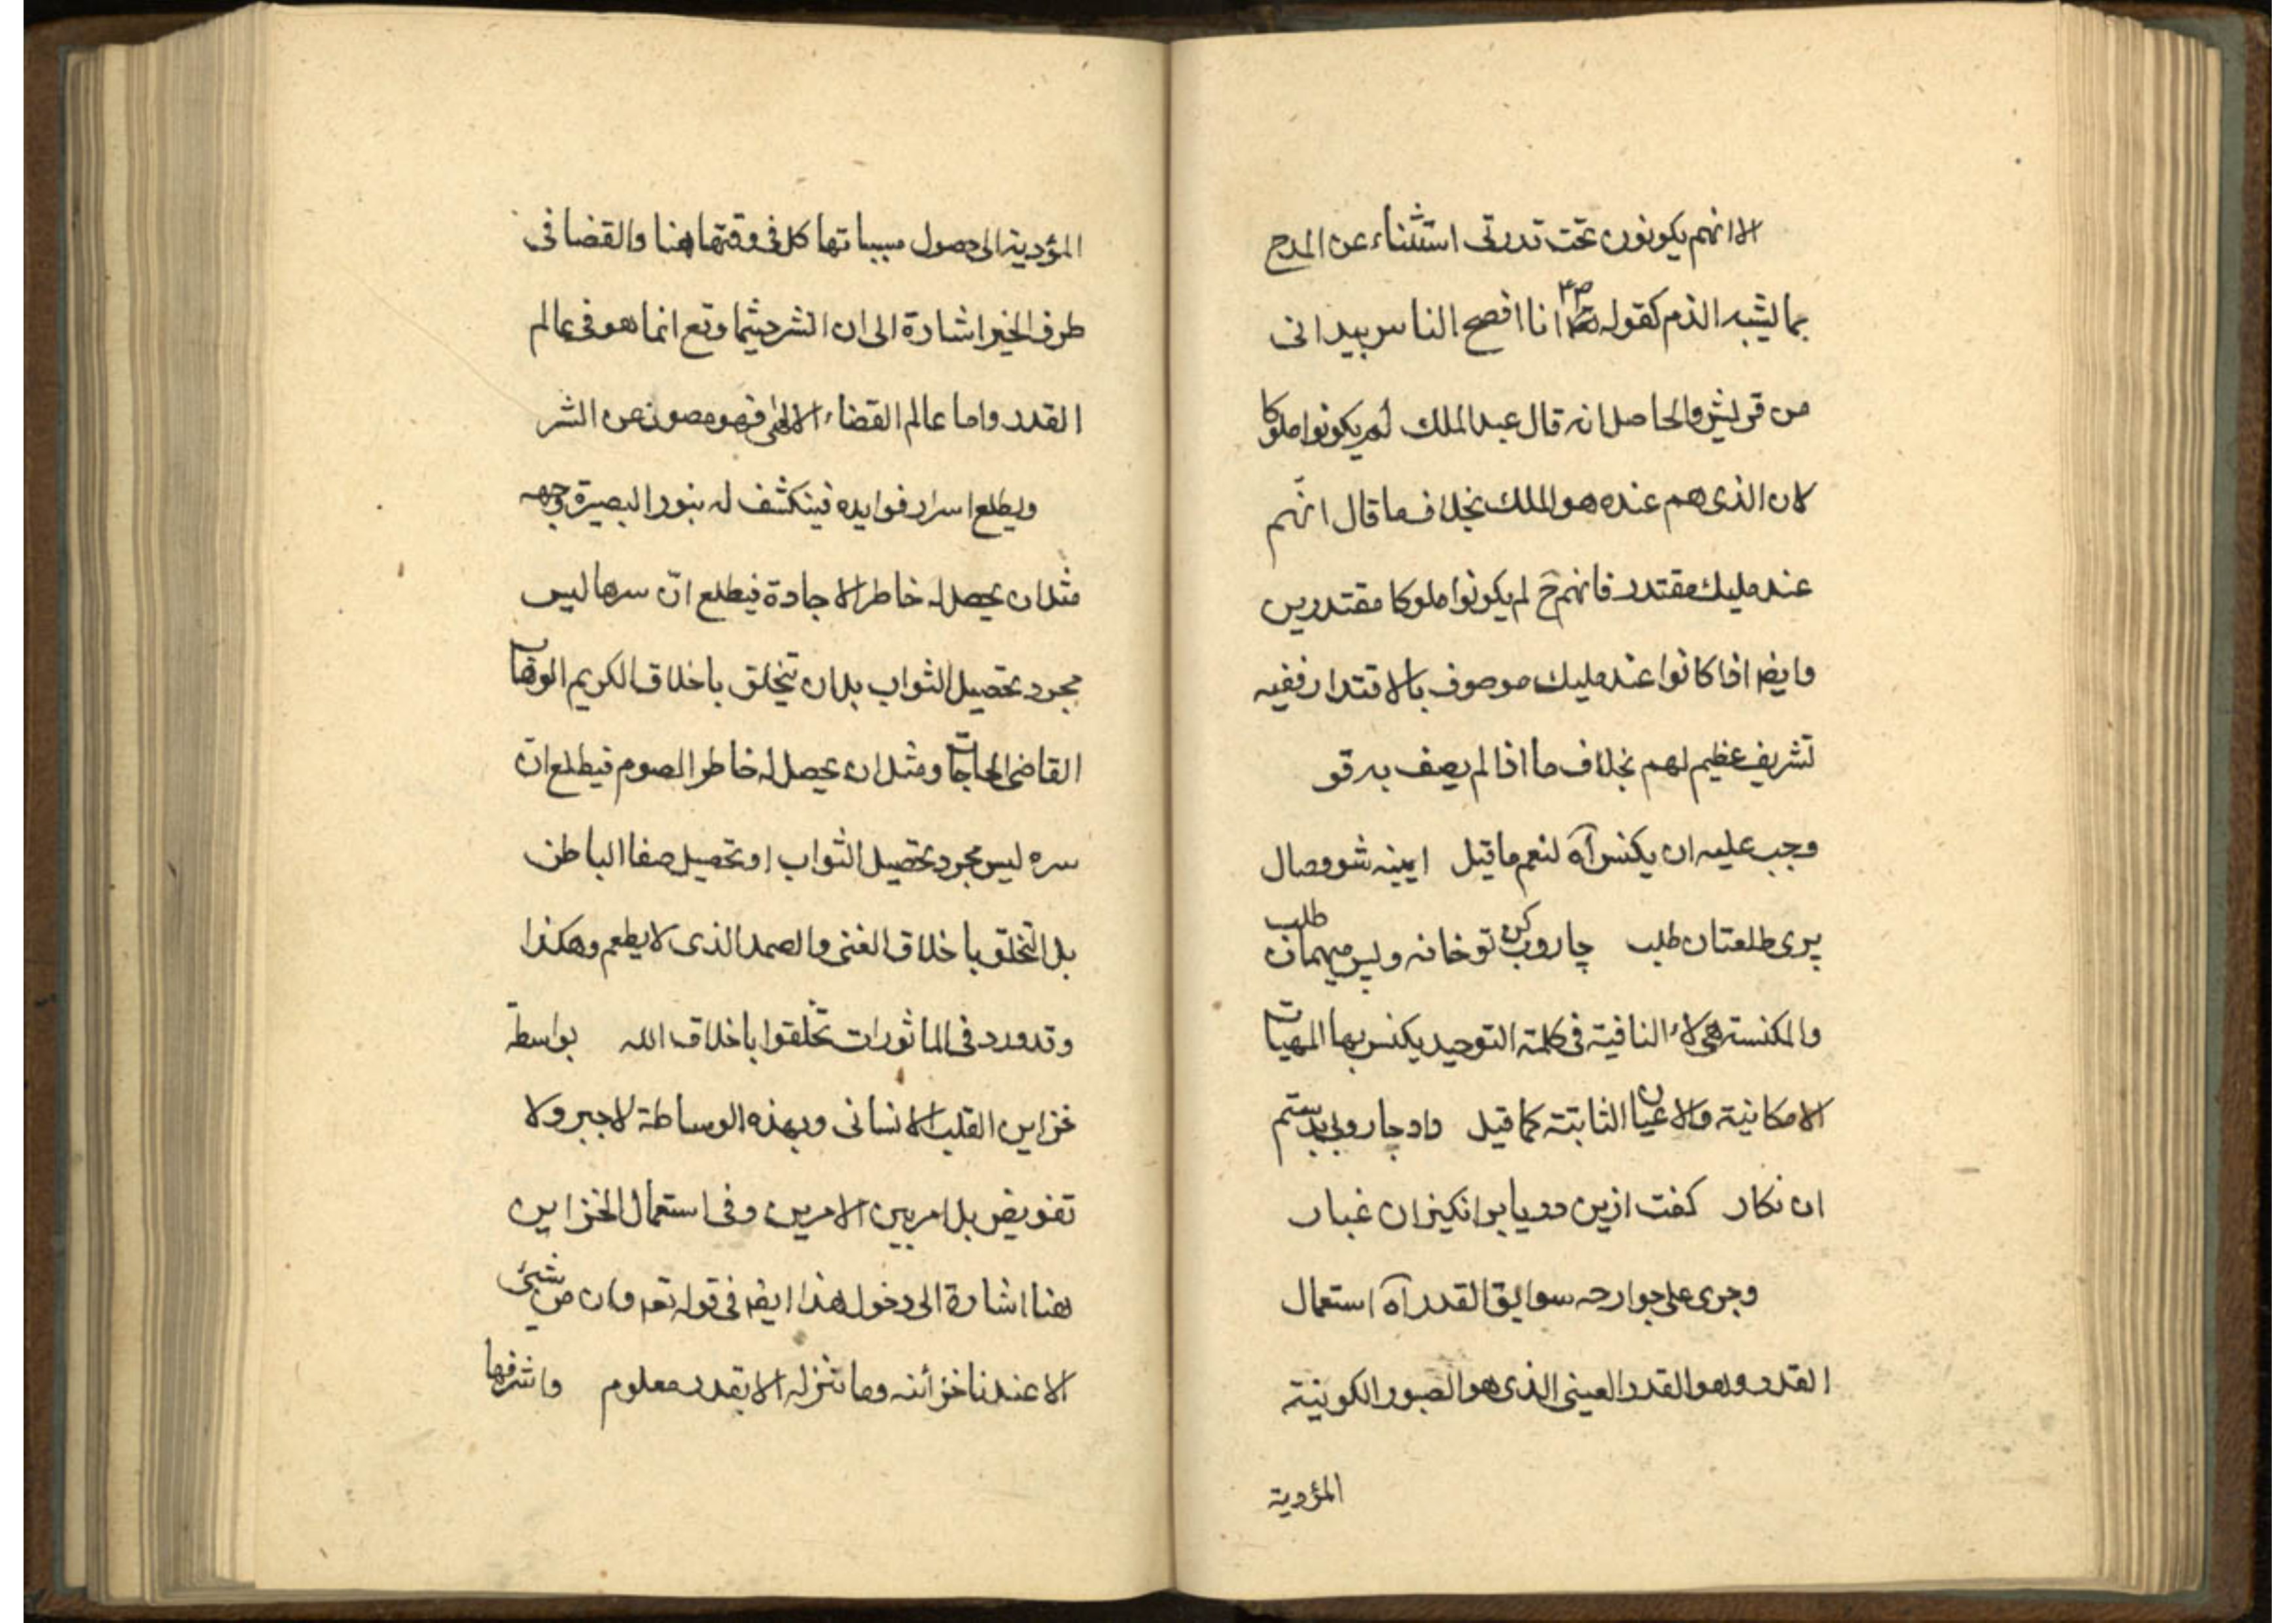 الا انهم يكونون تحت قدرتى استثناء عن المدح
بما يشبه الذم كقوله انا افصح الناس بيد انى
من قريش والحاصل انه قال عبد الملك لم يكونوا ملوكا
لان الذى هم عنده هو الملك بخلاف ما قال انهم
عند مليك مقتدر فانهم ح لم يكونوا ملوكا مقتدرين
وايضا اذا كانوا عند مليك موصوف بالاقتدار ففيه
تشريف عظيم لهم بخلاف ما اذا لم يصف به قو
وجب عليه ان يكنس آه لنعم ما قيل ايينه شو وصال
پرى طلعتان طلب جاروب كن تو خانه و پس ميهمان طلب
والمكنسة هى لاء النافية فى كلمة التوحيد يكنس بها المهيات
الامكانية والاعيان الثابتة كما قيل داد جاروبى بدستم
ان نكار كفت ازين دريا بر انكيزان غبار
وجرى على جوارحه سوابق القدر آه استعمال
القدر وهو القدر العينى الذى هو الصور الكونية
المؤدية
المؤدية الى حصول مسبباتها كل فى وقتها هنا والقضا فى
طرف الخير اشارة الى ان الشر حيثما وقع انما هو فى عالم
القدر واما عالم القضاء الالهى فهو مصون عن الشر
ويطلع اسرار فوايده فينكشف له بنور البصيرة وجهه
مثل ان يحصل له خاطر الاجادة فيطلع ان سرها ليس
مجرد تحصيل الثواب بل ان تتخلق باخلاق الكريم الوهاب
القاضى الحاجات ومثل ان يحصل له خاطر الصوم فيطلع ان
سره ليس مجرد تحصيل الثواب او تحصيل صفا الباطن
بل التخلق باخلاق الغنى والصمد الذى لا يطعم وهكذا
وقد ورد فى الماثورات تخلقوا باخلاق الله بواسطة
خزاين القلب الانسانى وبهذه الوساطة لا جبر ولا
تفويض بل امر بين الامرين وفى استعمال الخزاين
هنا اشارة الى دخول هذا ايضا فى قوله تعم وان من شىء
الا عندنا خزائنه وما ننزله الا بقدر معلوم واشرفها